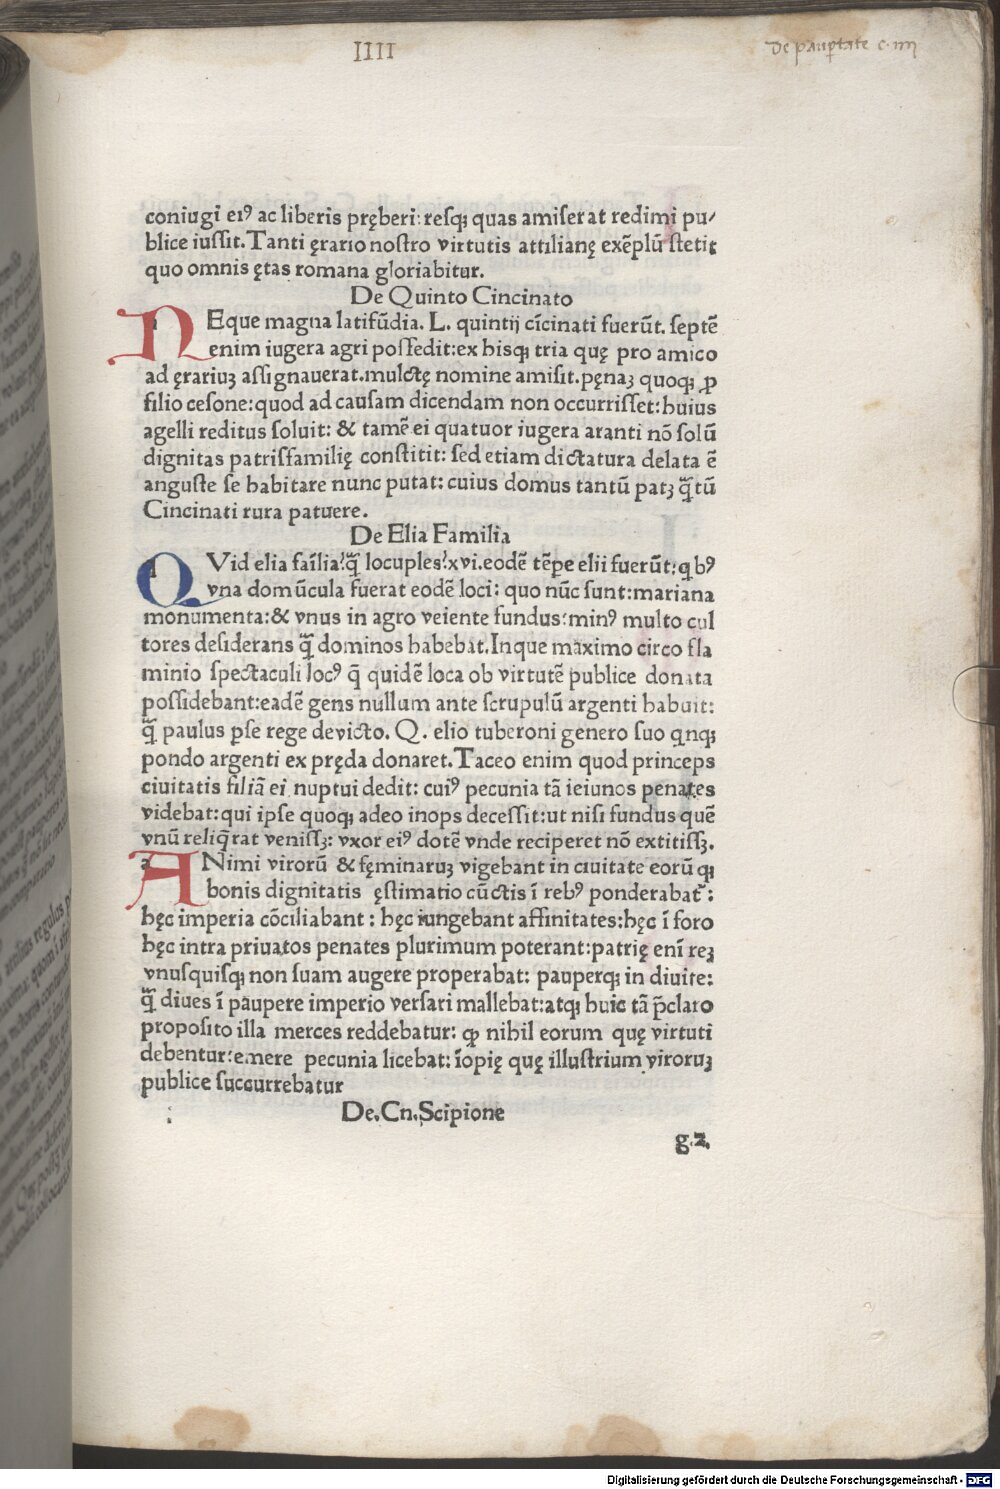 IIII
De paup̱tate c. iiii
coniugi eiꝰ ac liberis pręberi: resqꝫ quas amiserat redimi pu⸗
blice iussit. Tanti ęrario nostro virtutis attilianę exẽplũ stetit
quo omnis ętas romana gloriabitur.
De Quinto Cincinato
NEque magna latifũdia. L. quintij cĩcinati fuerũt. septẽ
enim iugera agri possedit: ex hisqꝫ tria quę pro amico
ad ęrariuꝫ assignauerat. mulctę nomine amisit. pęnaꝫ quoqꝫ ꝓ
filio cesone: quod ad causam dicendam non occurrisset: huius
agelli reditus soluit: & tamẽ ei quatuor iugera aranti nõ solũ
dignitas patrisfamilię constitit: sed etiam dictatura delata ẽ
anguste se habitare nunc putat: cuius domus tantũ patꝫ q̃tũ
Cincinati rura patuere.
De Elia Familia
QVid elia fãilia? q̃ locuples? xvi. eodẽ tẽpe elii fuerũt: qbꝰ
vna domũcula fuerat eodẽ loci: quo nũc sunt: mariana
monumenta: & vnus in agro veiente fundus: minꝰ multo cul
tores desiderans q̃ dominos habebat. Inque maximo circo fla
minio spectaculi locꝰ q̃ quidẽ loca ob virtutẽ publice donata
possidebant: eadẽ gens nullum ante scrupulũ argenti habuit:
q̃ paulus pse rege devicto. Q. elio tuberoni genero suo qnqꝫ
pondo argenti ex pręda donaret. Taceo enim quod princeps
ciuitatis filiã ei nuptui dedit: cuiꝰ pecunia tã ieiunos penates
videbat: qui ipse quoqꝫ adeo inops decessit: ut nisi fundus quẽ
vnũ reliq̃rat venissꝫ: vxor eiꝰ dotẽ vnde reciperet nõ extitissꝫ.
ANimi virorũ & fęminaruꝫ vigebant in ciuitate eorũ qꝫ
bonis dignitatis ęstimatio cũctis ĩ rebꝰ ponderabat᷑:
hęc imperia cõciliabant: hęc iungebant affinitates: hęc ĩ foro
hęc intra priuatos penates plurimum poterant: patrię enĩ reꝫ
vnusquisqꝫ non suam augere properabat: pauperqꝫ in diuite:
q̃ diues ĩ paupere imperio versari mallebat: atqꝫ huic tã p̃claro
proposito illa merces reddebatur: ꝙ nihil eorum quę virtuti
debentur: emere pecunia licebat: ĩopię quę illustrium viroruꝫ
publice succurrebatur
De. Cn. Scipione
g. 2.
Digitalisierung gefördert durch die Deutsche Forschungsgemeinschaft - DFG